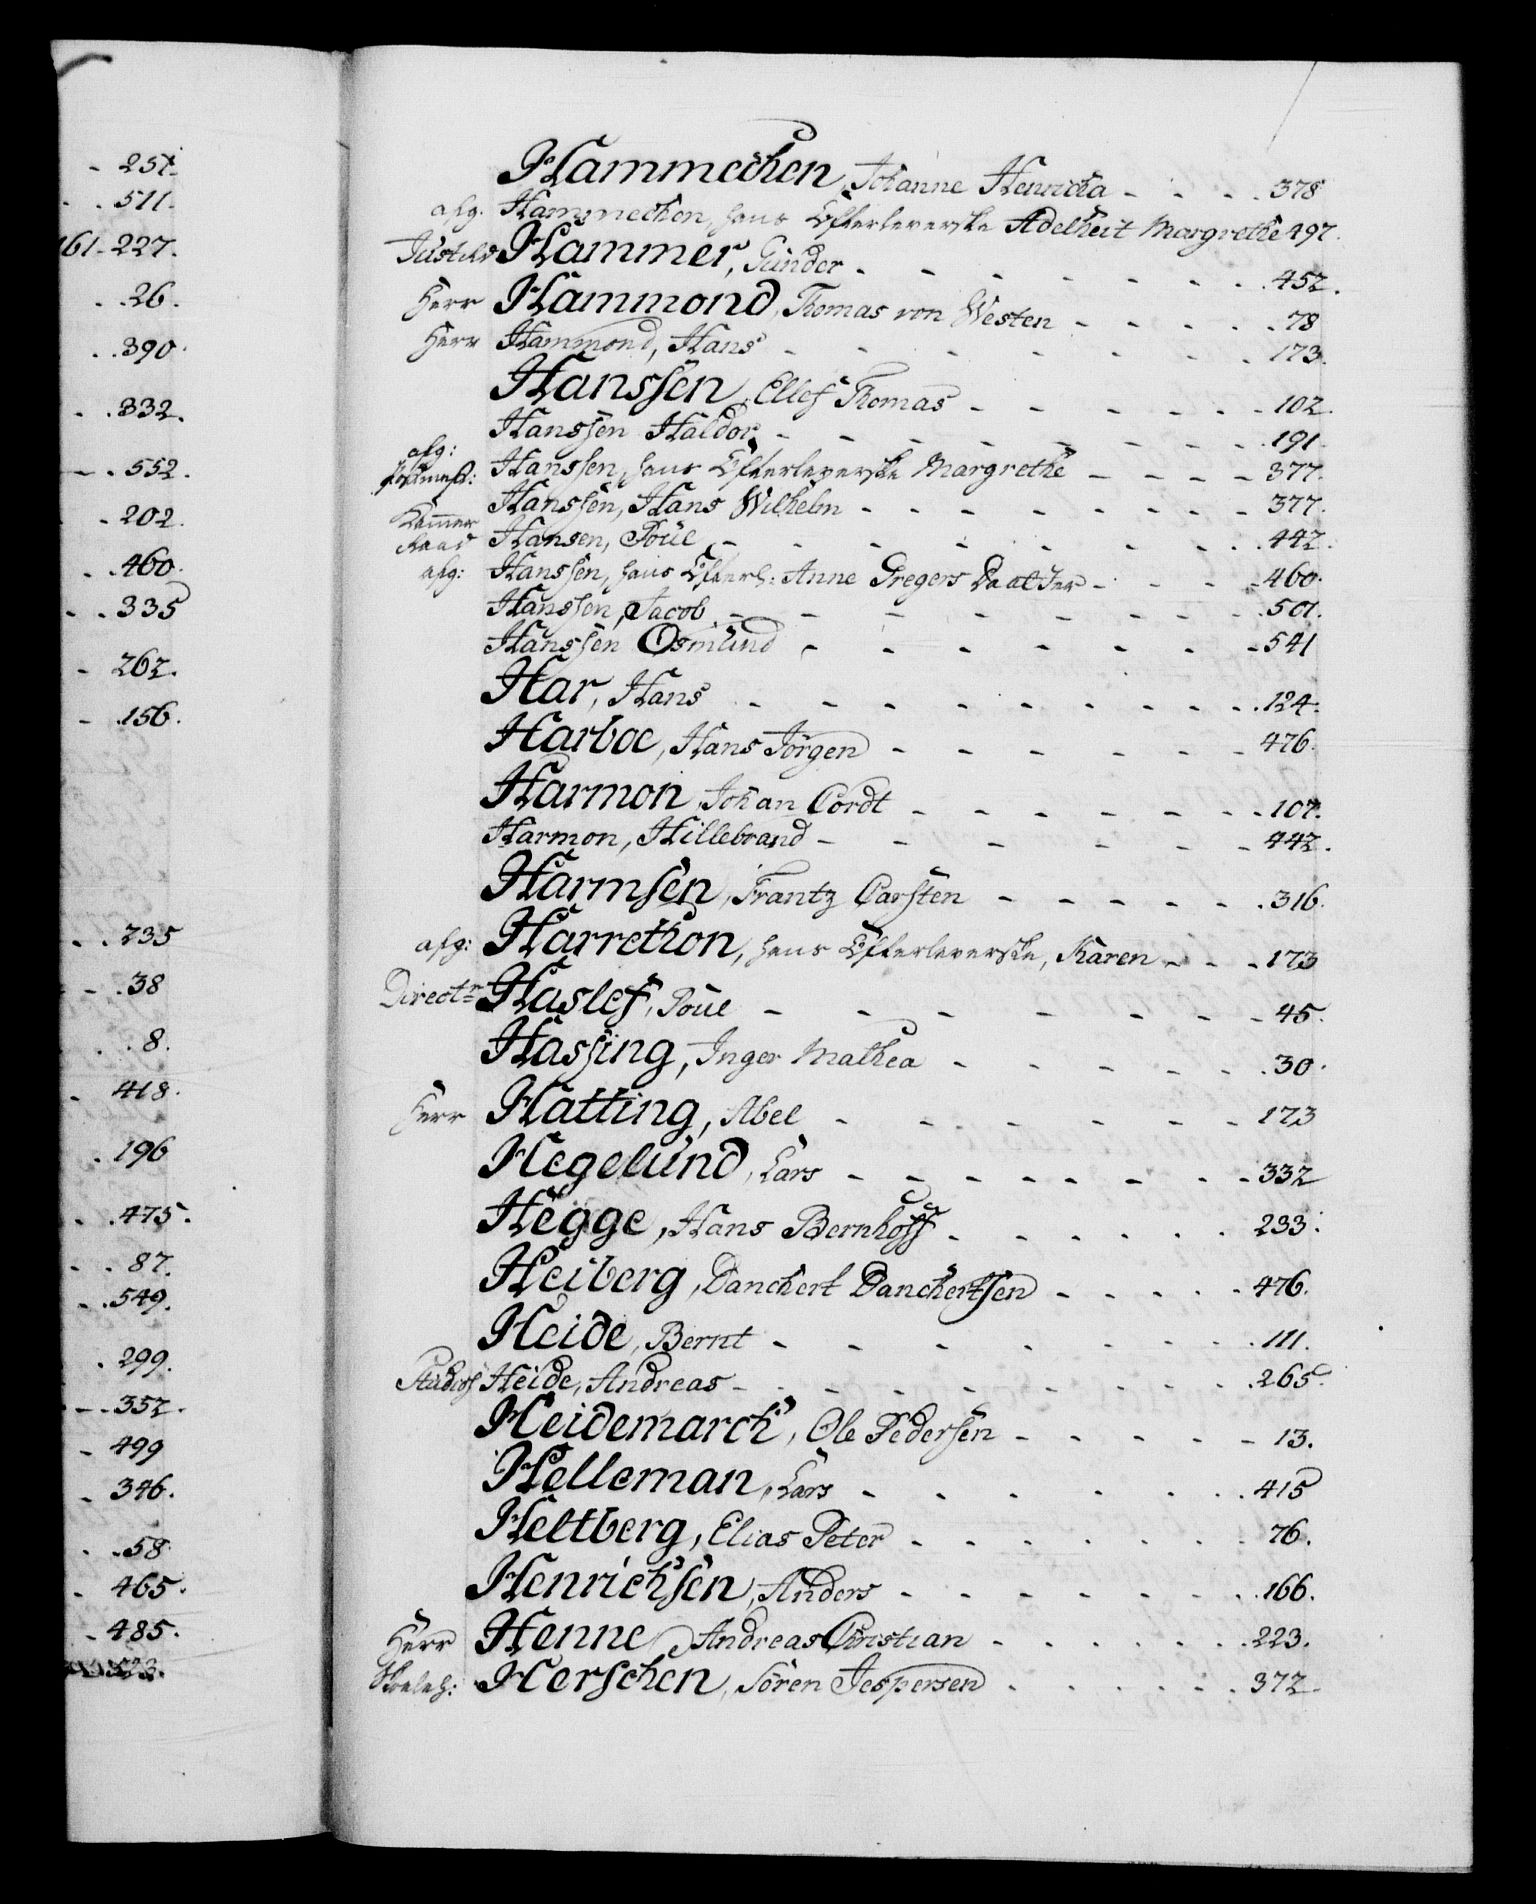 257.
511.
161-227.
26.
390.
332.
552.
202.
460.
335
262.
156.
235
38
8.
418.
196
475.
87.
549.
299.
352.
499
346.
58
465.
485.
523.
Hammechen, Johanne Henricha - - - 378
afg. Hammechen, hans Efterleverske Adelheit Margrethe 497.
Justitsr Hammer, Gunder - - - - - - - 452.
Herr Hammond, Thomas von Westen - - - - - 78
Herr Hammond, Hans - - - - - - - 173.
Hanssen, Ellef Thomas - - - - - 102.
Hanssen Haldor - - - - - - - - 191
afg: Postmest: Hanssen, hans Efterleverske Margrethe - - - - 377.
Hanssen, Hans Wilhelm - - - - - - - - 377.
Kammer Raad Hansen, Poul - - - - - - - - 442.
afg: Hanssen, hans Efterl: Anne Gregers Daatter - - - 460.
Hanssen, Jacob - - - - - - - - 501.
Hanssen Osmund - - - - - - - 541
Har, Hans - - - - - - - - 124.
Harboe, Hans Jörgen - - - - - - 476.
Harmon, Johan Cordt - - - - - - - 107.
Harmon, Hillebrand - - - - - - 442.
Harmsen, Frantz Carsten - - - - - - 316.
afg: Harrethon, hans Efterleverske, Karen - - - 173
Direct:r Haslef, Poul - - - - - - - 45.
Hassing, Inger Mathea - - - - - - 30.
Herr Hatting, Abel - - - - - - - 173
Hegelund, Lars - - - - - - - - 332
Hegge, Hans Bernhoff - - - - - - 233.
Heiberg, Danchert Danchertsen - - - - - 476.
Heide, Bernt - - - - - - - - 111.
Heide, Andreas - - - - - - - - 265.
Heidemarck, Ole Pedersen - - - - - 13.
Helleman, Lars - - - - - - - 415
Heltberg, Elias Peter - - - - - - - 76.
Henrichsen, Anders - - - - - - - - 166.
Herr Henne, Andreas Christian - - - - - - 223.
Herschen, Sören Jespersen - - - - - - 372.